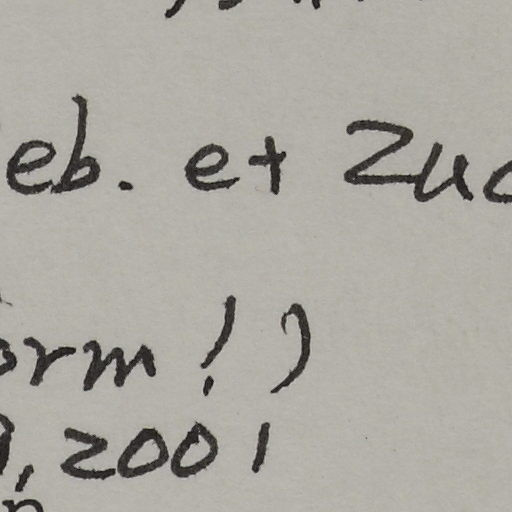 eb. et Zuc
orm!)
, 2001